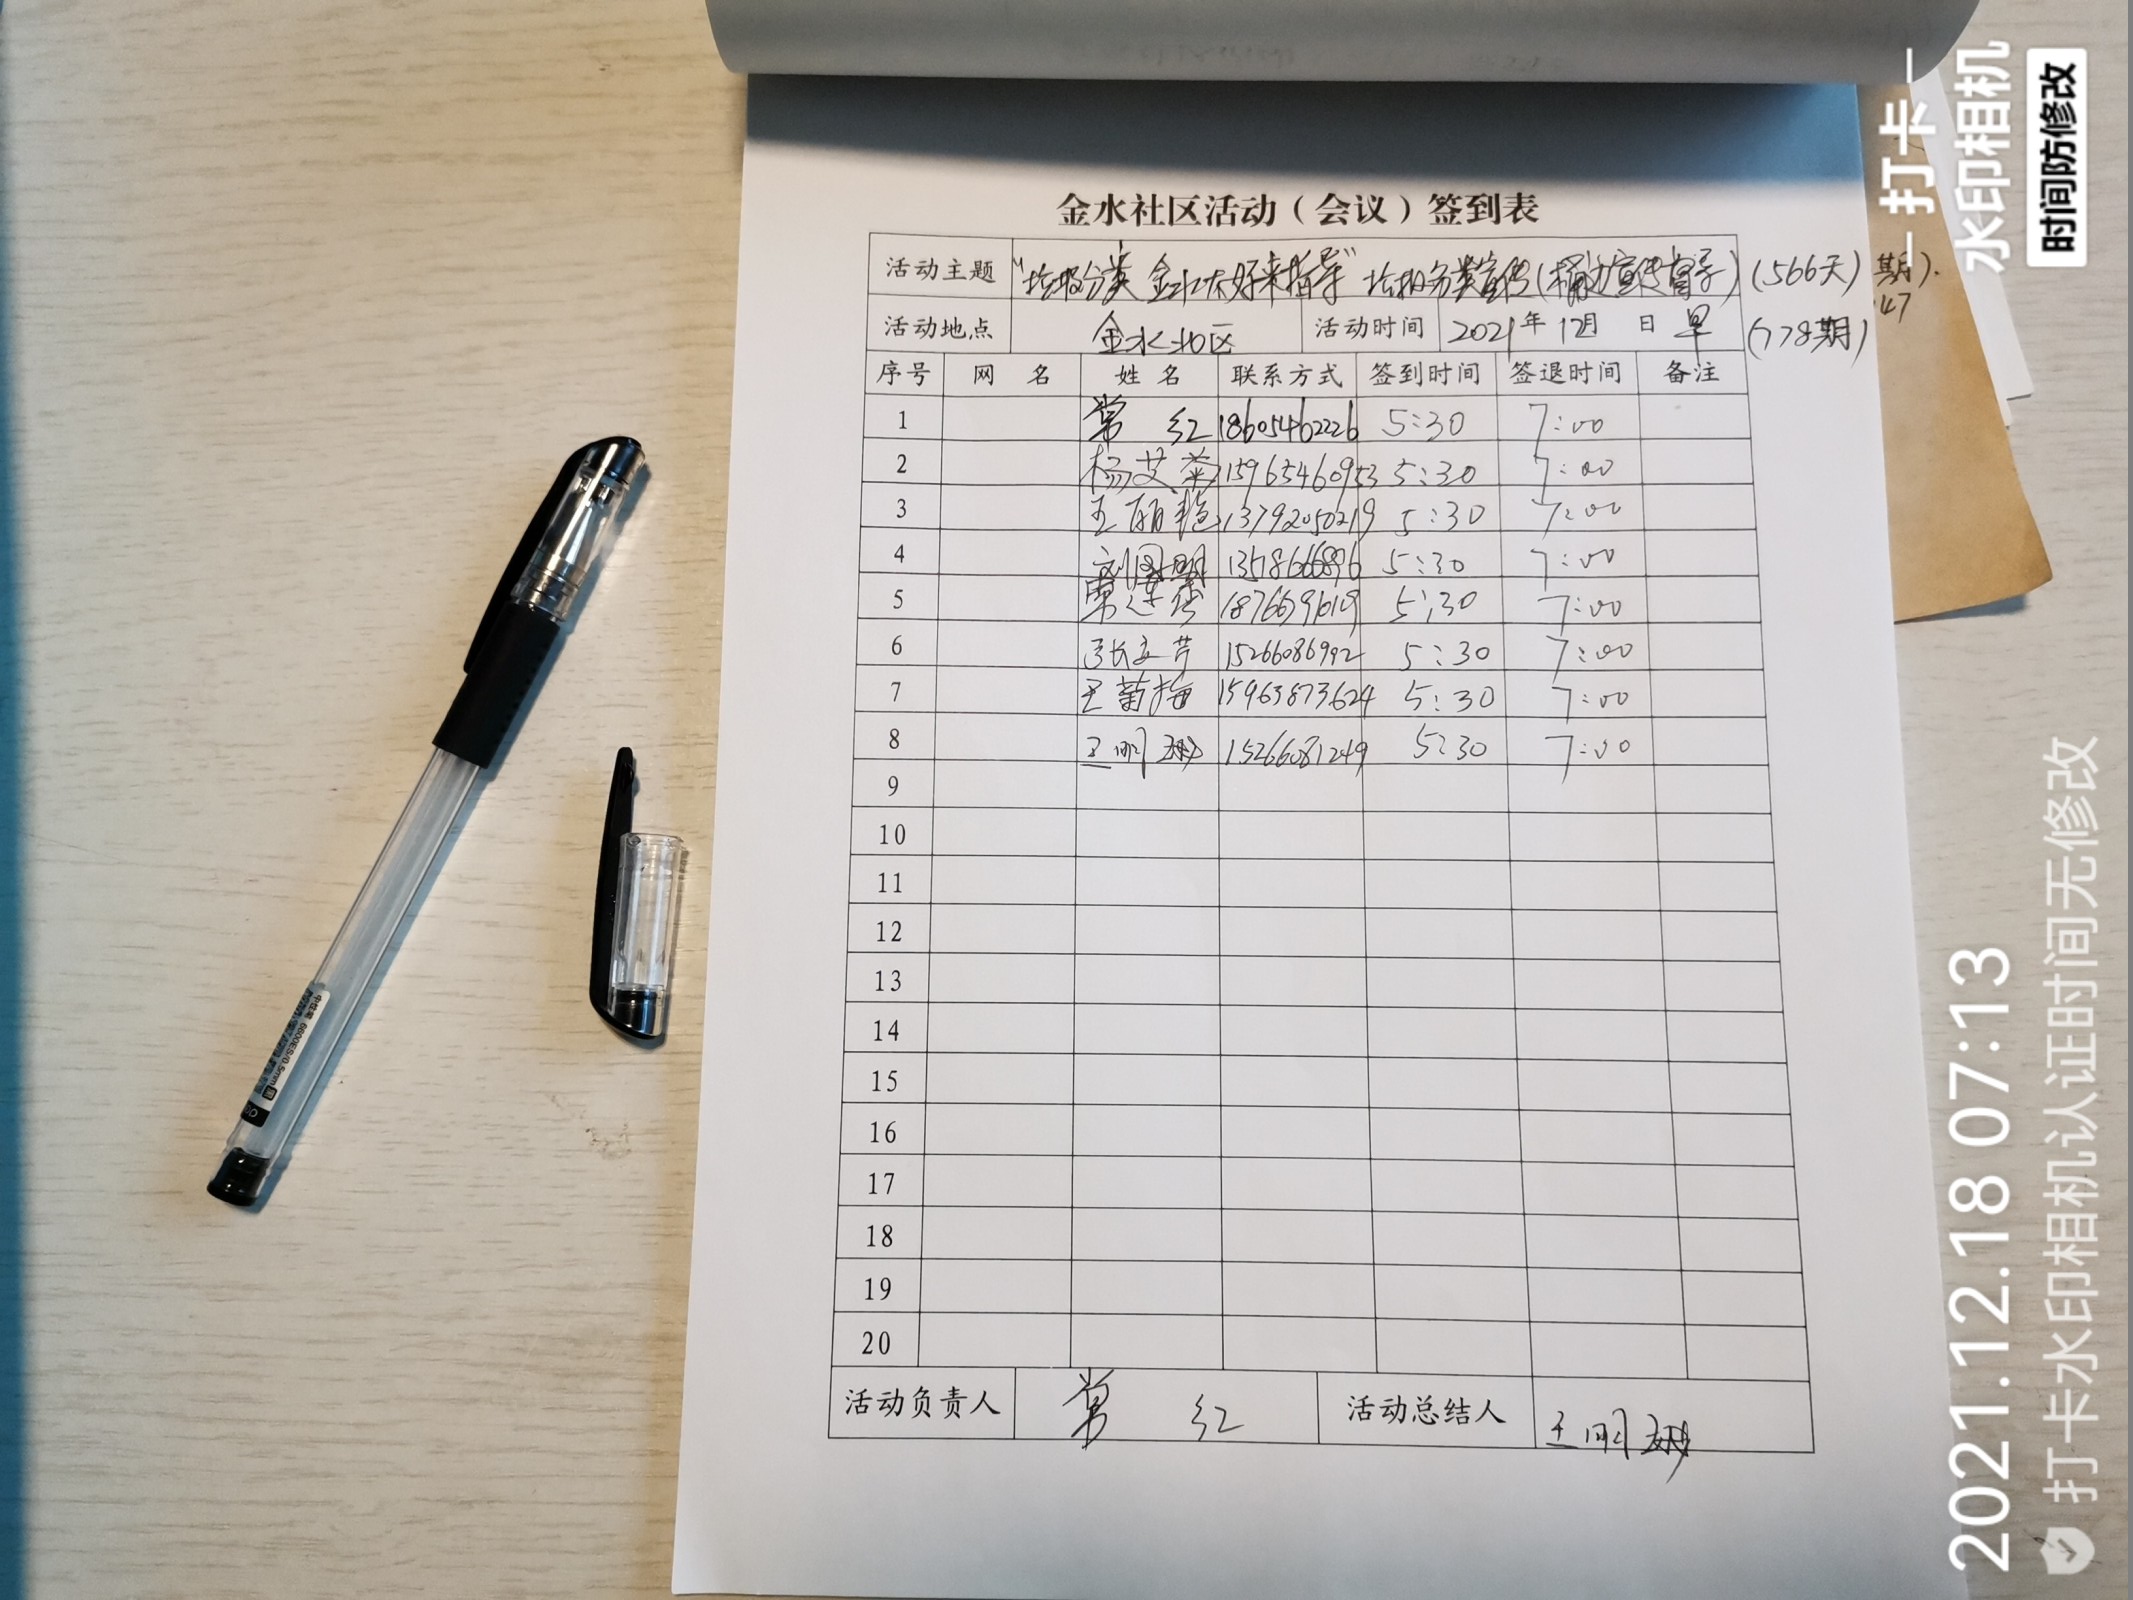 金水社区活动（会议）签到表
活动主题 "垃圾分类 金水大好来指导" 垃圾分类宣传(桶边宣传督导) (566天)
活动地点 金水北区 活动时间 2021年12月 日 早 (778期)
序号 网名 姓名 联系方式 签到时间 签退时间 备注
1 常红 18605462226 5:30 7:00
2 杨艾菊 15965460953 5:30 7:00
3 王丽艳 13792050219 5:30 7:00
4 5:30 7:00
5 5:30 7:00
6 15266086992 5:30 7:00
7 王菊梅 15963873624 5:30 7:00
8 王明 15266081249 5:30 7:00
9
10
11
12
13
14
15
16
17
18
19
20
活动负责人 常红 活动总结人 王明
期).
47
打卡
水印相机
时间防修改
2021.12.18 07:13
打卡水印相机认证时间无修改
中性笔 6600ES/0.5mm